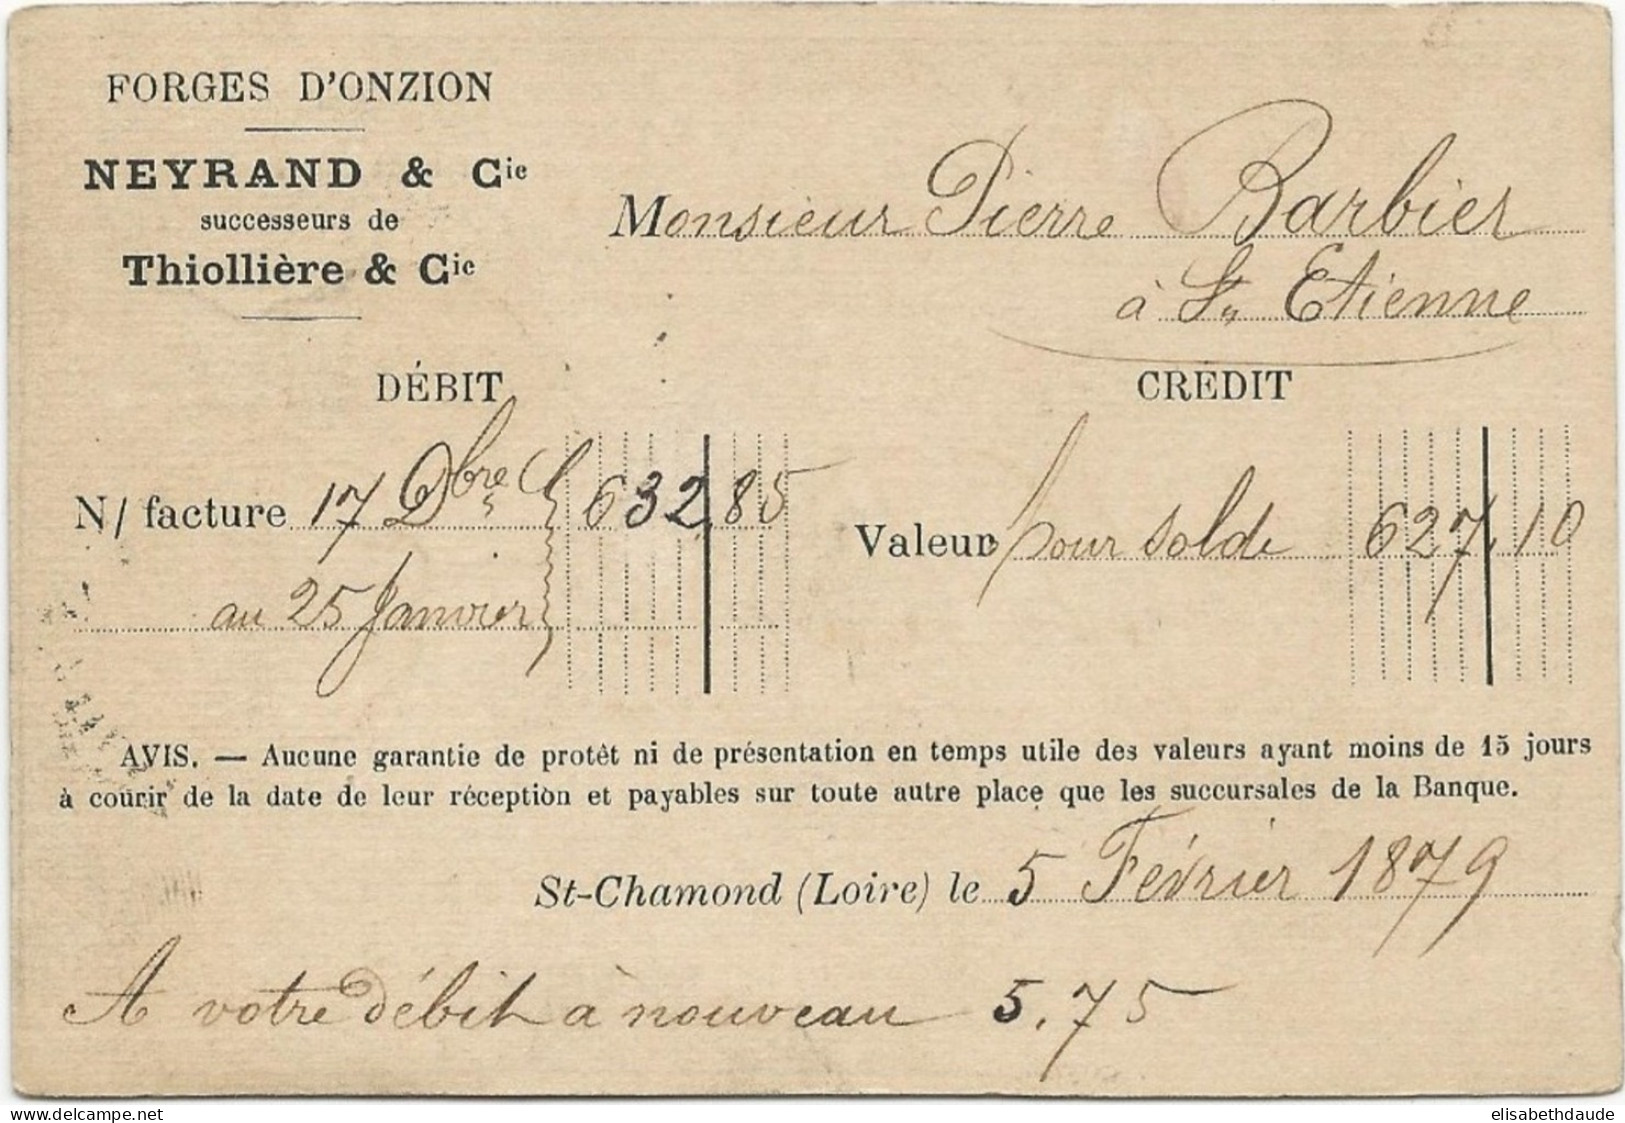 FORGES D'ONZION
NEYRAND & Cie
successeurs de
Thiollière & Cie
Monsieur Pierre Barbier
à St Etienne
DÉBIT
CREDIT
N/ facture 17 Dbre 632,85
au 25 Janvier
Valeur pour solde 627,10
AVIS. — Aucune garantie de protêt ni de présentation en temps utile des valeurs ayant moins de 15 jours
à courir de la date de leur réception et payables sur toute autre place que les succursales de la Banque.
St-Chamond (Loire) le 5 Février 1879
A votre débit à nouveau 5.75
delcampe.net
elisabethdaude